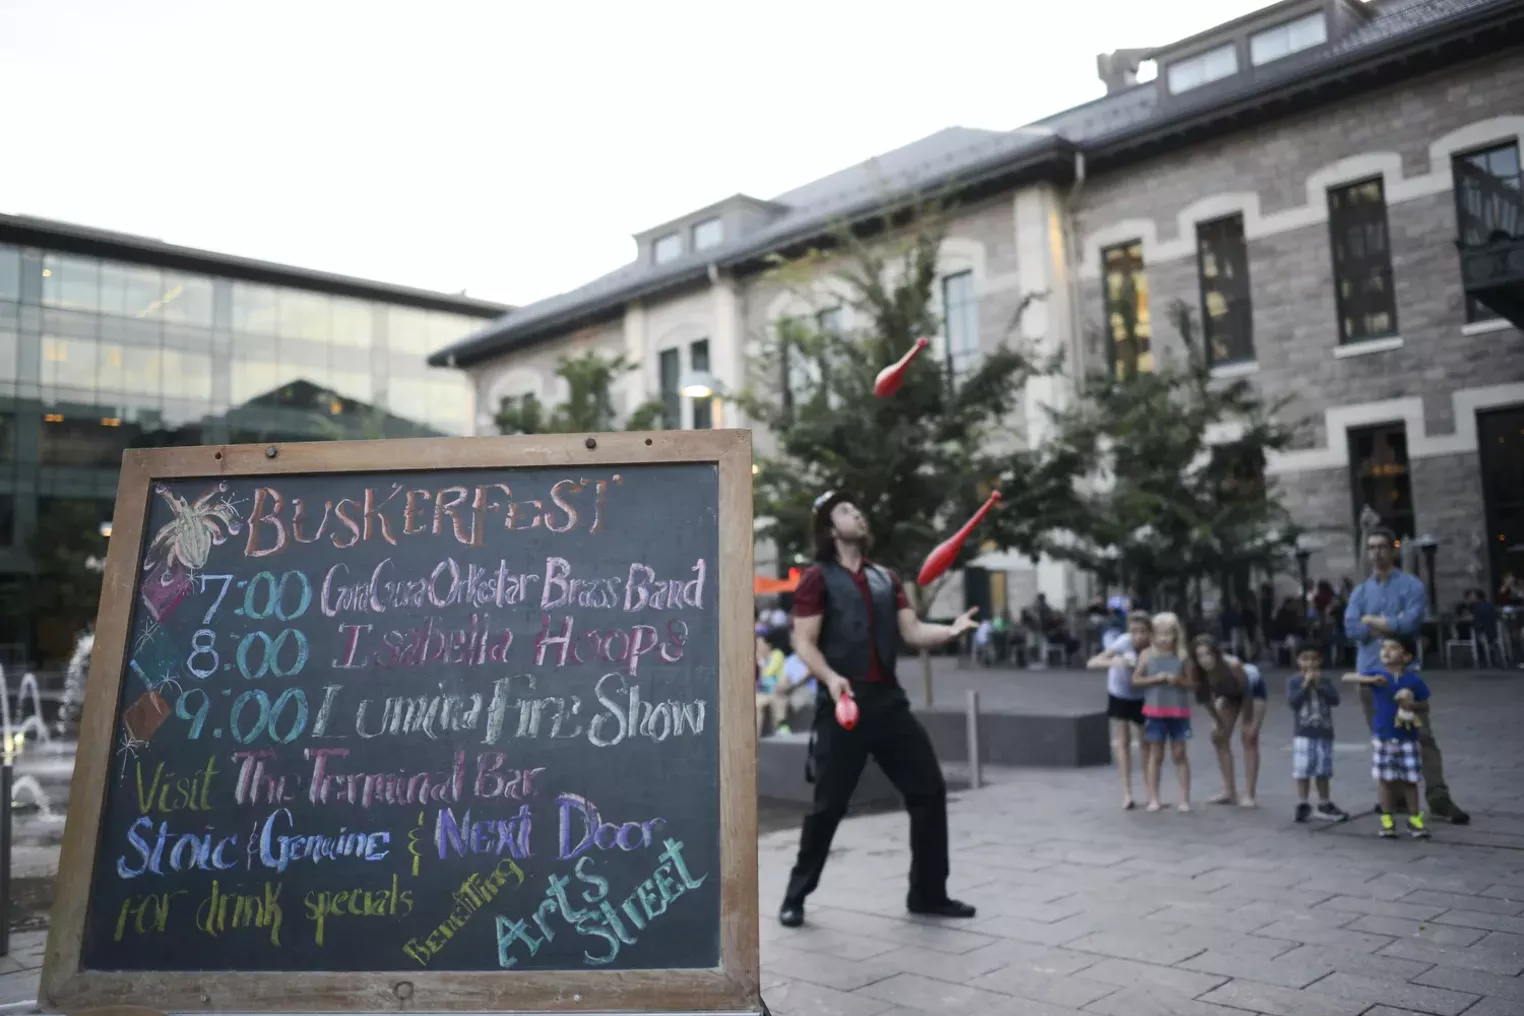 BUSKERFEST
7:00 GoraGoraOrkestar Brass Band
8:00 Isabella Hoops
9:00 Lumina Fire Show
Visit The Terminal Bar
Stoic & Genuine & Next Door
For drink specials
Benefiting
Arts
Street